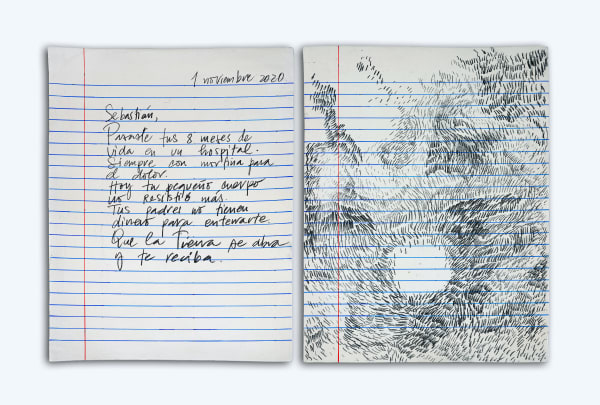 1 noviembre 2020
Sebastián,
Pasaste tus 8 meses de
vida en un hospital.
Siempre con morfina para
el dolor.
Hoy tu pequeño cuerpo
no resistió más.
Tus padres no tienen
dinero para enterrarte.
Que la Tierra se abra
y te reciba.